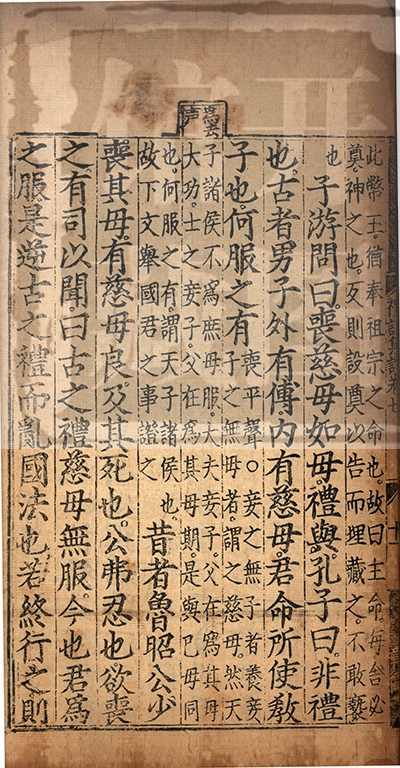 此幣玉猶奉祖宗之命也。故曰主命。每舍必
奠。神之也。反則設奠以告而埋藏之。不敢褻
也
子游問曰。喪慈母如母。禮與。孔子曰。非禮
也。古者男子外有傅。內有慈母。君命所使敎
子也。何服之有
喪平聲○妾之無子者養妾
子之無母者謂之慈母。然天
子諸侯不爲庶母服。大夫妾子。父在爲其母
大功。士之妾子。父在爲其母期。是與己母同
也。何服之有。謂天子諸侯也。
故下文舉國君之事證之
昔者魯昭公少
喪其母。有慈母良。及其死也。公弗忍也。欲喪
之。有司以聞。曰古之禮。慈母無服。今也君爲
之服。是逆古之禮而亂國法也。若終行之。則
爲去聲